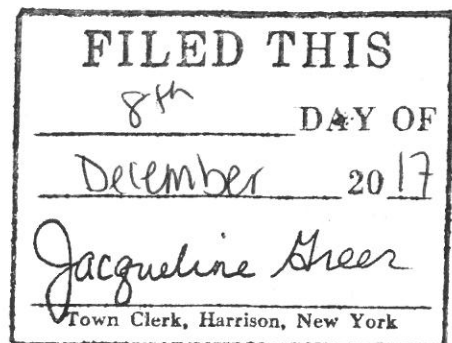 FILED THIS
8th DAY OF
December 2017
Jacqueline Greer
Town Clerk, Harrison, New York